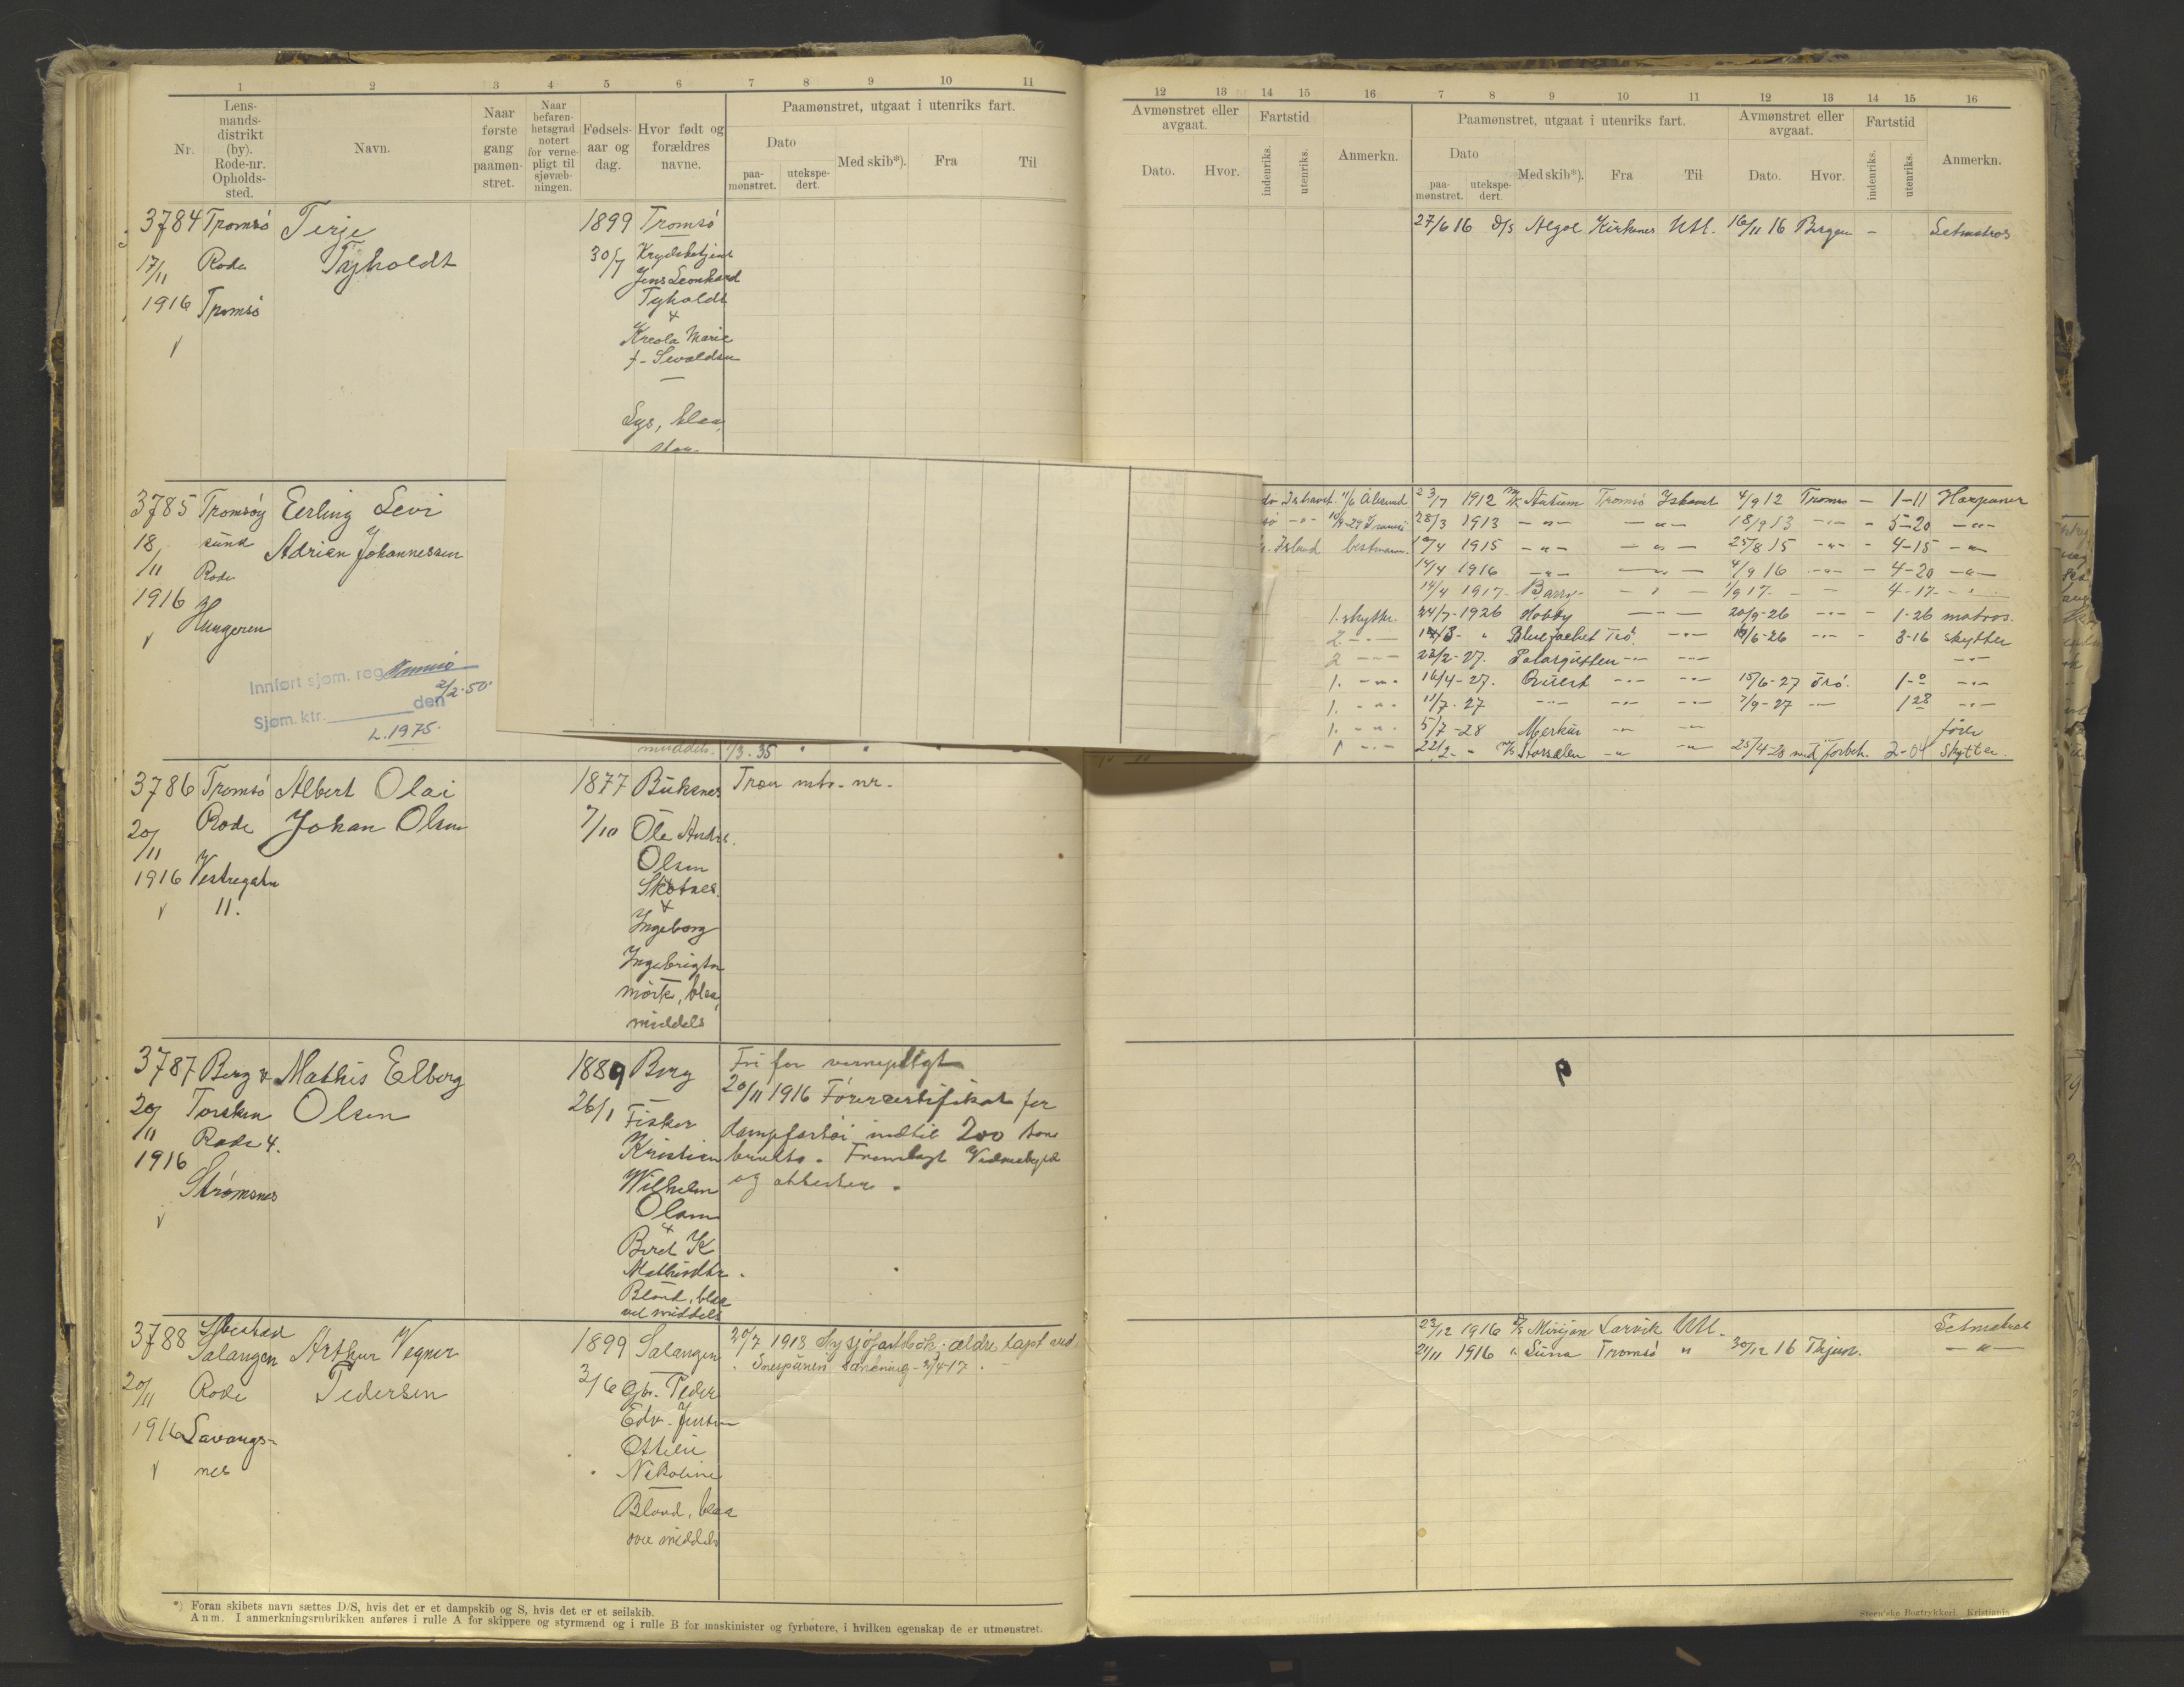 1 2 3 4 5 6 7 8 9 10 11
Nr.
Lens-
mands-
distrikt
(by).
Rode-nr.
Opholds-
sted.
Navn.
Naar
første
gang
paamøn-
stret.
Naar
befaren-
hetsgrad
notert
for verne-
pligt til
sjøvæb-
ningen.
Fødsels-
aar og
dag.
Hvor født og
forældres
navne.
Paamønstret, utgaat i utenriks fart.
Dato
paa-
mønstret.
utekspe-
dert.
Med skib*).
Fra
Til
3784 Tromsö Terje 1899 Tromsö
17/11 Rode Tyholdt 30/7
Jens Leonhard
1916 Tromsö Tyholdt
&
Kreola Marie
f. Sivaldsen
Lys, blaa,
stor
3785 Tromsøy Eerling Levi
18/11 sund Adrian Johannessen
Rode
1916 Hungeren
Innført sjøm. reg. Tromsö
Sjøm. ktr. den 2/2-50
L. 1975.
middels. 1/3.35
3786 Tromsö Albert Olai 1877 Buksnes
20/11 Rode Johan Olsen 7/10 Ole Andr.
Olsen
1916 Vestregatn Skotnes
11. &
Ingeborg
Ingebrigtn
mörk, blaa,
middels
3787 Berg & Mathis Elberg 1889 Berg Fri for vernepligt
20/11 Torsken Olsen 26/1 Fisker 20/11 1916 Förercertifikat for
Rode 4. Kristian dampfartöi indtil 200 tons
1916 Strömsnes Wilhelm brutto. Fremlagt
Olsen og attester.
&
Beret K
Mathisdtr.
Blond, blaa
vel middels
3788 Ibestad
Salangen Arthur Vegner 1899 Salangen 20/7 1918 Ny sjöfartsbok; ældre tapt ved
20/11 Rode Pedersen 3/6 Gbr. Peder
1916 Lavangs- Edv. Jensen
nes Ottilie
Nikoline
Blond, blaa
over middels
*) Foran skibets navn sættes D/S, hvis det er et dampskib og S, hvis det er et seilskib.
Anm. I anmerkningsrubrikken anføres i rulle A for skippere og styrmænd og i rulle B for maskinister og fyrbøtere, i hvilken egenskap de er utmønstret.
12 13 14 15 16 7 8 9 10 11 12 13 14 15 16
Avmønstret eller
avgaat.
Dato. Hvor.
Fartstid
indenriks.
utenriks.
Anmerkn.
Paamønstret, utgaat i utenriks fart.
Dato
paa-
mønstret.
utekspe-
dert.
Med skib*). Fra Til
Avmønstret eller
avgaat.
Dato. Hvor.
Fartstid
indenriks.
utenriks.
Anmerkn.
27/6 16 D/S Algol Kirkenes Utl. 16/11 16 Bergen - Letmatros
Ishavet 11/6 Ålesund 23/7 1912 Tromsö Ishavet 4/9 12 Tromsö - 1-11 Harpuner
28/3 1913 -"- -"- 18/9 13 -"- - 5-20 -"-
Island bestmann. 10/4 1915 -"- -"- 25/8 15 -"- - 4-15 -"-
14/4 1916 -"- -"- 4/9 16 -"- - 4-20 -"-
14/4 1917 1/9 17 4-17
1. skytter 24/7-1926 Hobby -"- 20/9-26 -"- - 1-26 matros.
2 -"- Bluejacket Trö. -"- -"- - 3-16 skytter
2 -"- 23/2-27. Polargutten -"- -"- -"-
1. -"- 16/4-27. Quest -"- -"- 15/6-27 Trö. 1-0 -"-
1. -"- 11/7-27 -"- -"- -"- 7/9-27 -"- 1 28 -"-
1. -"- 5/7-28 Merkur -"- -"- fører
1 -"- 22/2- " Storsælen -"- -"- 25/4-28 2-04 Skytter.
23/12 1916 D/S Mirjan Larvik Utl. Letmatros
21/11 1916 " Tromsö " 30/12 16 -"-
Steen'ske Bogtrykkeri. Kristiania